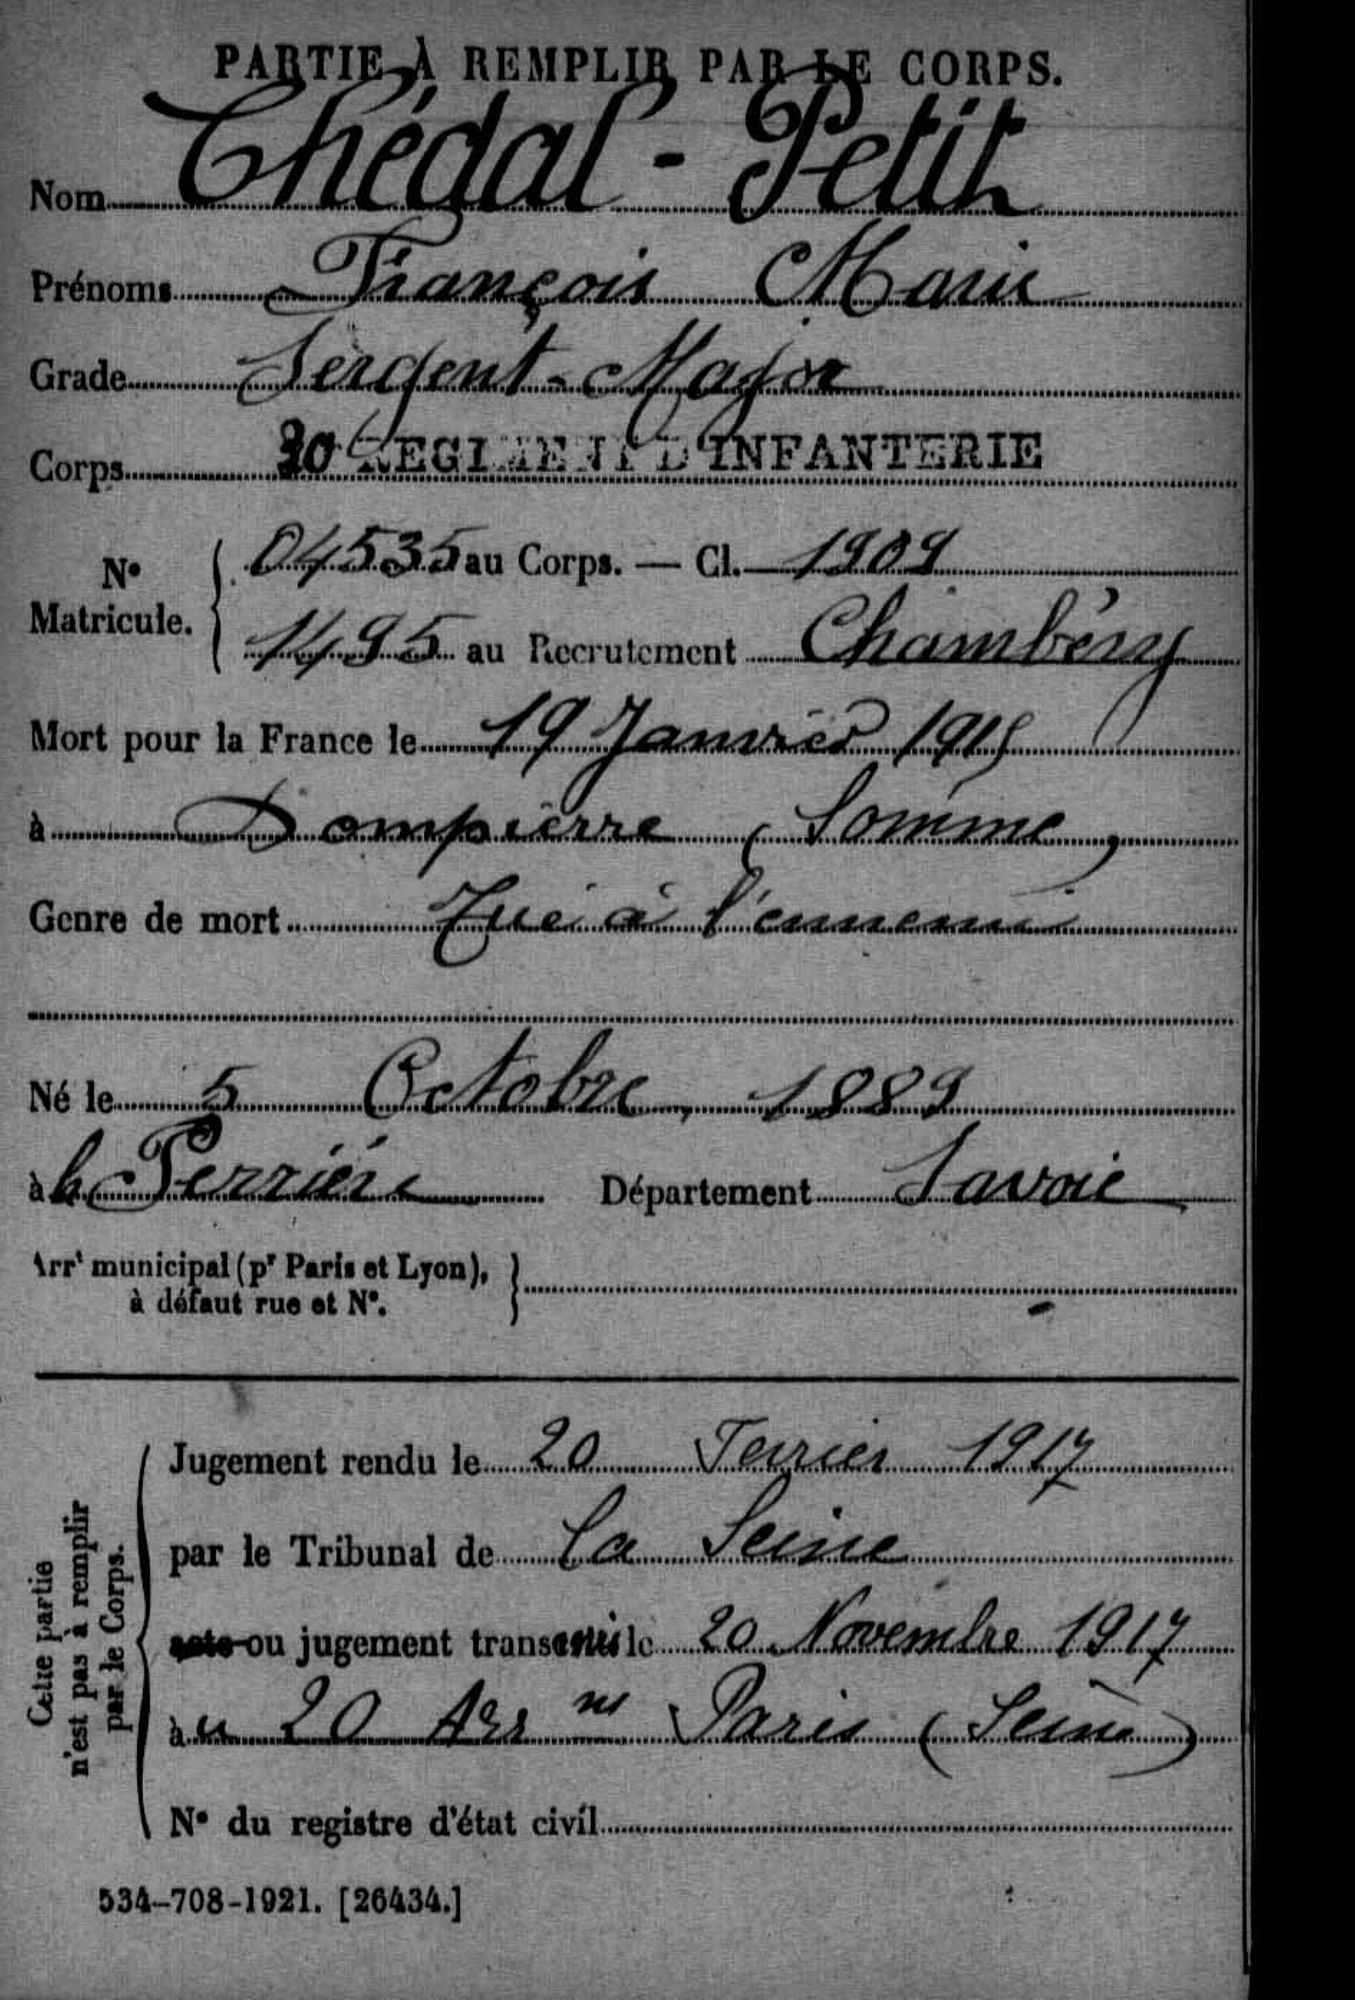 PARTIE À REMPLIR PAR LE CORPS.
Nom Chédal-Petit
Prénoms François Marie
Grade Sergent-Major
Corps 30 REGIMENT D'INFANTERIE
N° Matricule. { 04535 au Corps. — Cl. 1909
1495 au Recrutement Chambéry
Mort pour la France le 19 Janvier 1915
à Dompierre (Somme)
Genre de mort Tué à l'ennemi
Né le 5 Octobre 1889
à la Perrière Département Savoie
Arrt municipal (pr Paris et Lyon), à défaut rue et N°. }
Cette partie n'est pas à remplir par le Corps.
Jugement rendu le 20 Fevrier 1917
par le Tribunal de La Seine
acte ou jugement transcrit le 20 Novembre 1917
au 20 Arr nt Paris (Seine)
N° du registre d'état civil
534-708-1921. [26434.]